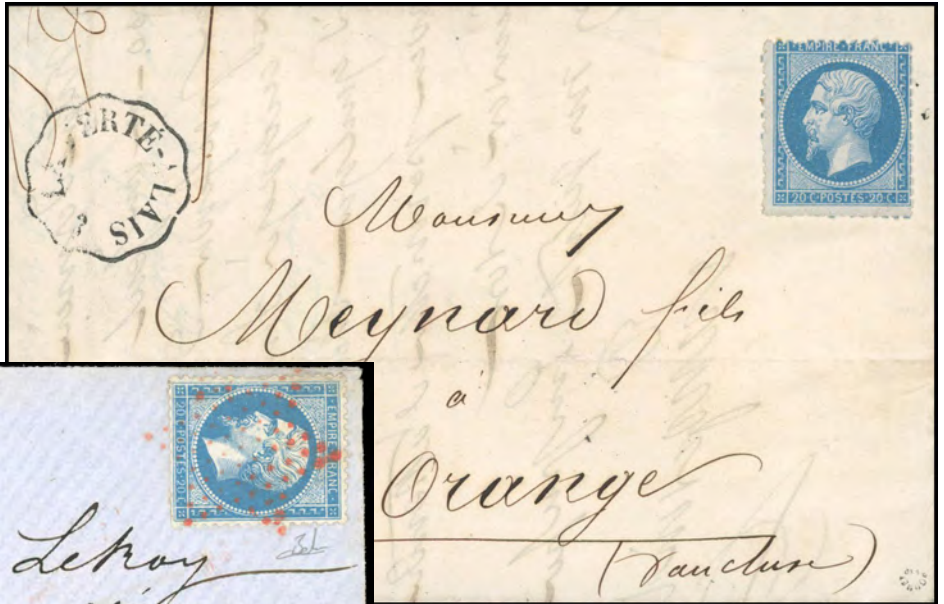 LA FERTÉ-ALAIS
3
EMPIRE·FRANC·
20 C·POSTES·20 C
Monsieur
Meynard fils
à
Orange
(Vaucluse)
EMPIRE·FRANC·
20 C·POSTES·20 C
LeRoy